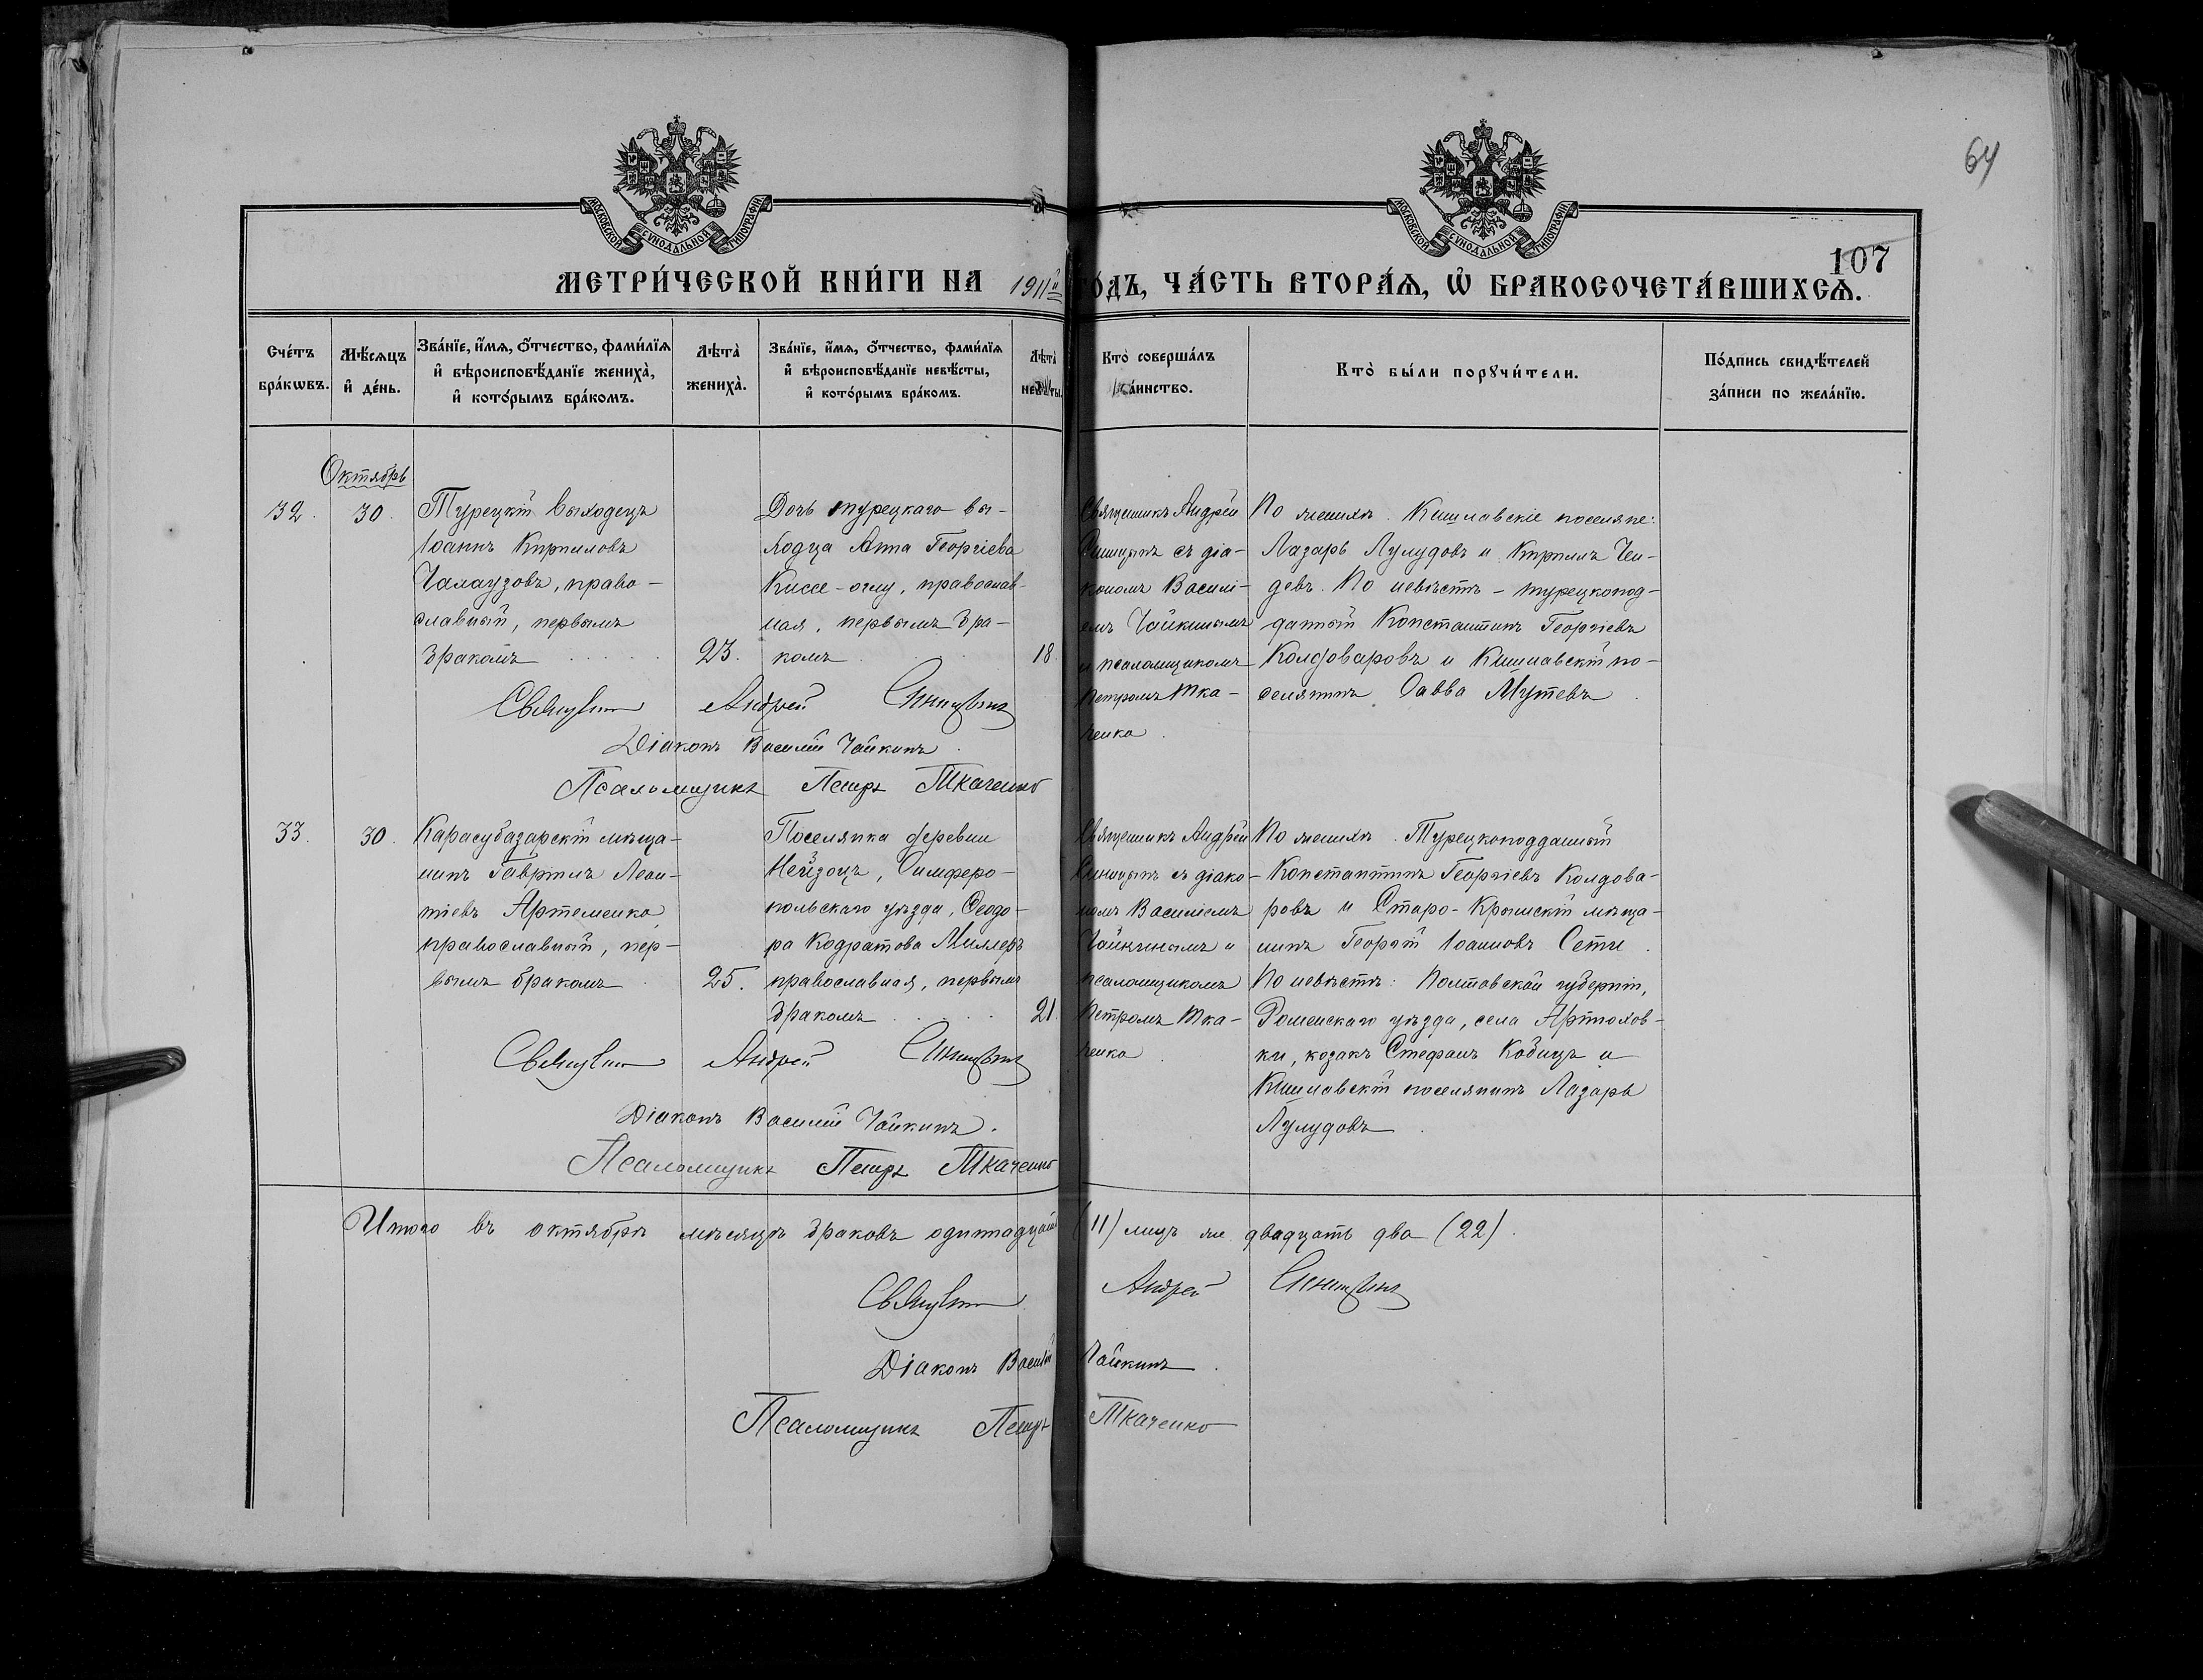 64
107
МОСКОВСКОЙ СѴНОДАЛЬНОЙ ТИПОГРАФІИ
МОСКОВСКОЙ СѴНОДАЛЬНОЙ ТИПОГРАФІИ
МЕТРИ́ЧЕСКОЙ КНИ́ГИ НА 1911й ГО́ДЪ, ЧА́СТЬ ВТОРА́Я, Ѡ҆ БРАКОСОЧЕТА́ВШИХСЯ.
Сче́тъ
бра́кѡвъ.
Мѣ́сяцъ
и҆ де́нь.
Зва́нїе, и҆́мя, ѻ҆́тчество, фами́лїя
и҆ вѣроисповѣ́данїе жениха̀,
и҆ кото́рымъ бра́комъ.
Лѣта̀
жениха̀.
Зва́нїе, и҆́мя, ѻ҆́тчество, фами́лїя
и҆ вѣроисповѣ́данїе невѣ́сты,
и҆ кото́рымъ бра́комъ.
Лѣта̀
невѣ́сты.
Кто̀ соверша́лъ
та́инство.
Кто̀ бы́ли порꙋчи́тели.
По́дпись свидѣ́телей
за́писи по жела́нїю.
Октябрь
32. 30.
Турецкій выходецъ
Іоаннъ Кирилловъ
Чалаузовъ, право-
славный, первымъ
бракомъ
23.
Дочь турецкаго вы-
ходца Анна Георгіева
Киссе-оглу, православ-
ная, первымъ бра-
комъ
18
Священникъ Андрей
Синицынъ съ діа-
кономъ Василі-
емъ Чайкинымъ
и псаломщикомъ
Петромъ Тка-
ченко.
По женихѣ. Кишлавскіе поселяне:
Лазарь Лулудовъ и Кириллъ Чен-
девъ. По невѣстѣ - турецкопод-
данный Константинъ Георгіевъ
Колдоваровъ и Кишлавскій по-
селянинъ Савва Мутевъ
Священникъ Андрей Синицынъ
Діаконъ Василій Чайкинъ.
Псаломщикъ Петръ Ткаченко
33. 30.
Карасубазарскій мѣща-
нинъ Гавріилъ Леон-
тіевъ Артеменко
православный, пер-
вымъ бракомъ
25.
Поселянка деревни
Нейзоцъ, Симферо-
польскаго уѣзда, Ѳеодо-
ра Кодратова Миллеръ
православная, первымъ
бракомъ
21.
Священникъ Андрей
Синицынъ съ діако-
номъ Василіемъ
Чайкинымъ и
псаломщикомъ
Петромъ Тка-
ченко.
По женихѣ. Турецкоподданный
Константинъ Георгіевъ Колдова-
ровъ и Старо-Крымскій мѣща-
нинъ Георгій Іоанновъ Сети.
По невѣстѣ: Полтавской губерніи,
Роменскаго уѣзда, села Артюхов-
ки, козакъ Стефанъ Кобицъ и
Кишлавскій поселянинъ Лазарь
Лулудовъ.
Священникъ Андрей Синицынъ
Діаконъ Василій Чайкинъ.
Псаломщикъ Петръ Ткаченко
Итого въ октябрѣ мѣсяцѣ браковъ одиннадцать (11) лицъ же двадцать два (22).
Священникъ Андрей Синицынъ
Діаконъ Василій Чайкинъ.
Псаломщикъ Петръ Ткаченко